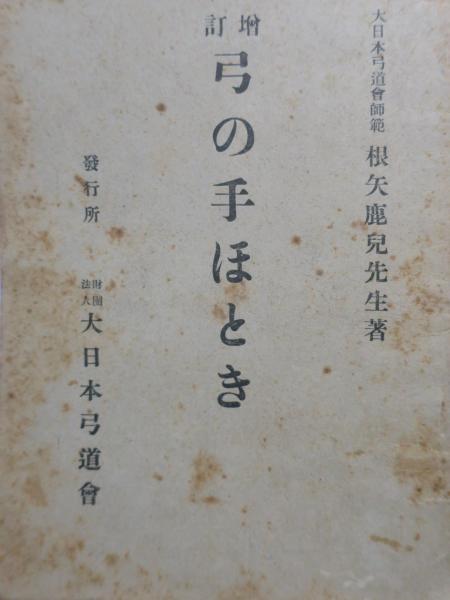 大日本弓道會師範 根矢鹿兒先生著
増訂
弓の手ほとき
發行所 財團法人 大日本弓道會